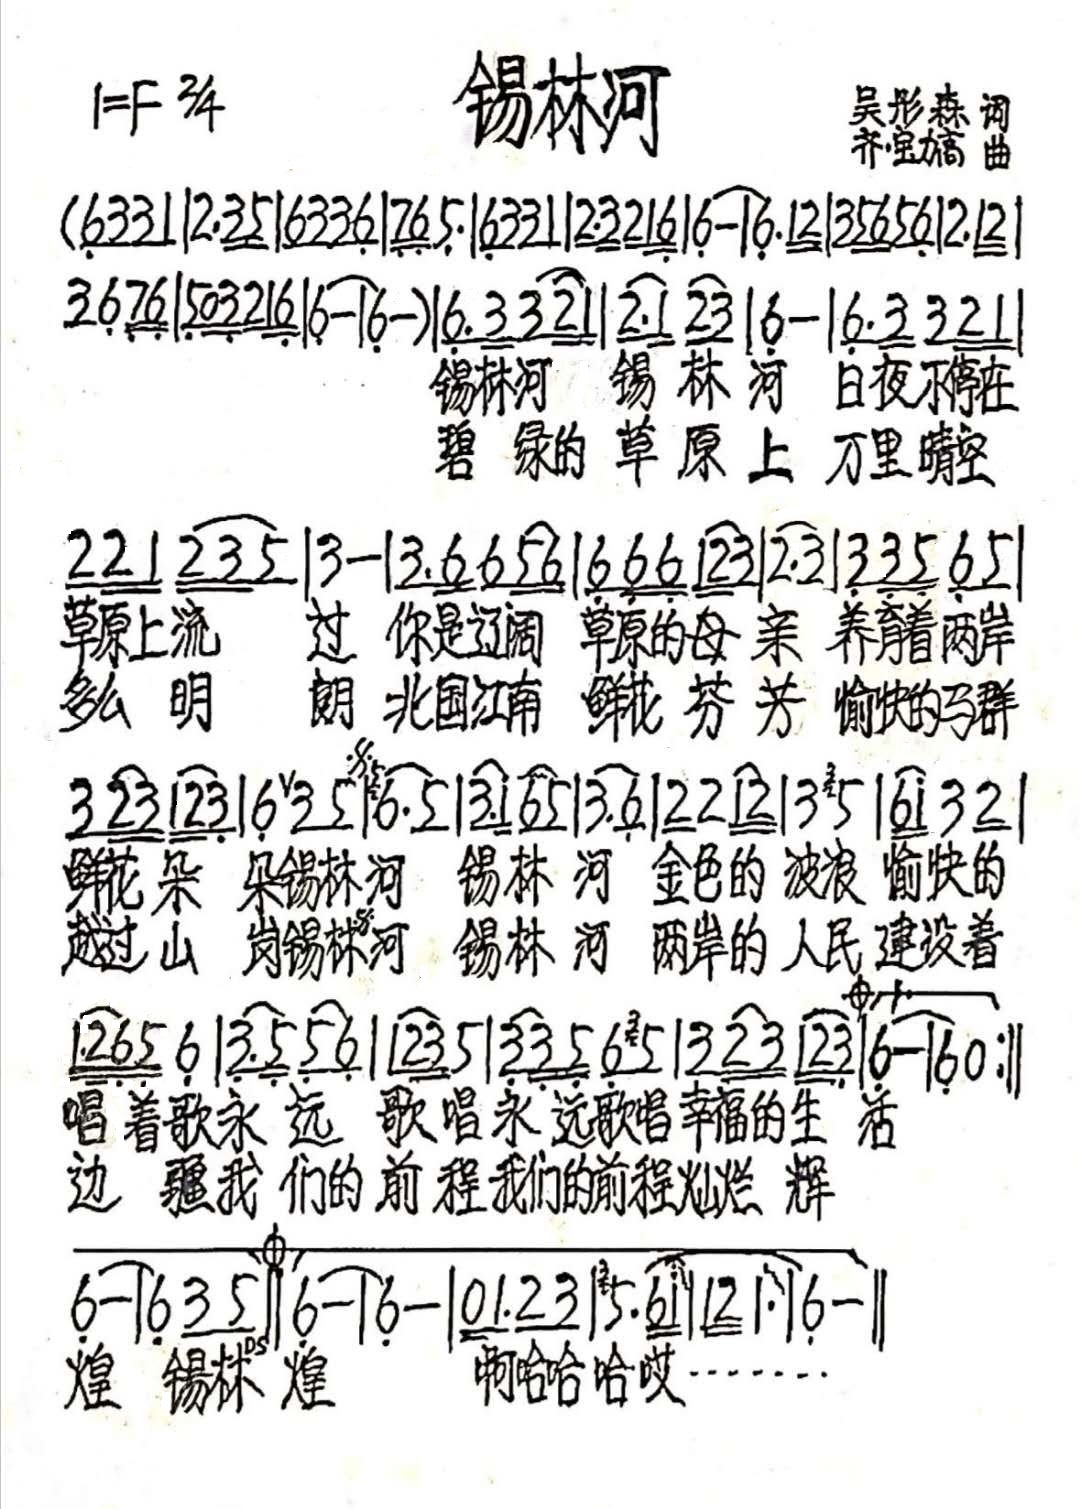 锡林河
1=F 2/4
吴彤森 词
齐·宝力高 曲
(6331|2·35|6336|765·|6331|2·3216|6-|6·12|35656|2·12|
3676|503216|6-|6-)|6·3321|2·1 23|6-|6·3 321|
锡林河 锡林河 日夜不停在
碧绿的草原上 万里晴空
221 235|3-|3·6656|666 123|2·3|335 65|
草原上流 过 你是辽阔 草原的母亲 养育着两岸
多么明 朗 北国江南 鲜花芬芳 愉快的马群
323 123|6 35|6·5|3·1 65|3·6|22 12|3 5|61 32|
鲜花朵 朵锡林河 锡林河 金色的 波浪 愉快的
越过山 岗锡林河 锡林河 两岸的 人民 建设着
1·265 6|3·5 56|123 5|335 65|323 123|6-|60:‖
唱着歌永远 歌唱永远歌唱幸福的生 活
边疆我们的前程我们的前程灿烂 辉
6-|6 35‖6-|6-|01·23|5·61|12 1·|6-‖
煌 锡林 DS 煌 啊哈哈哈哎········